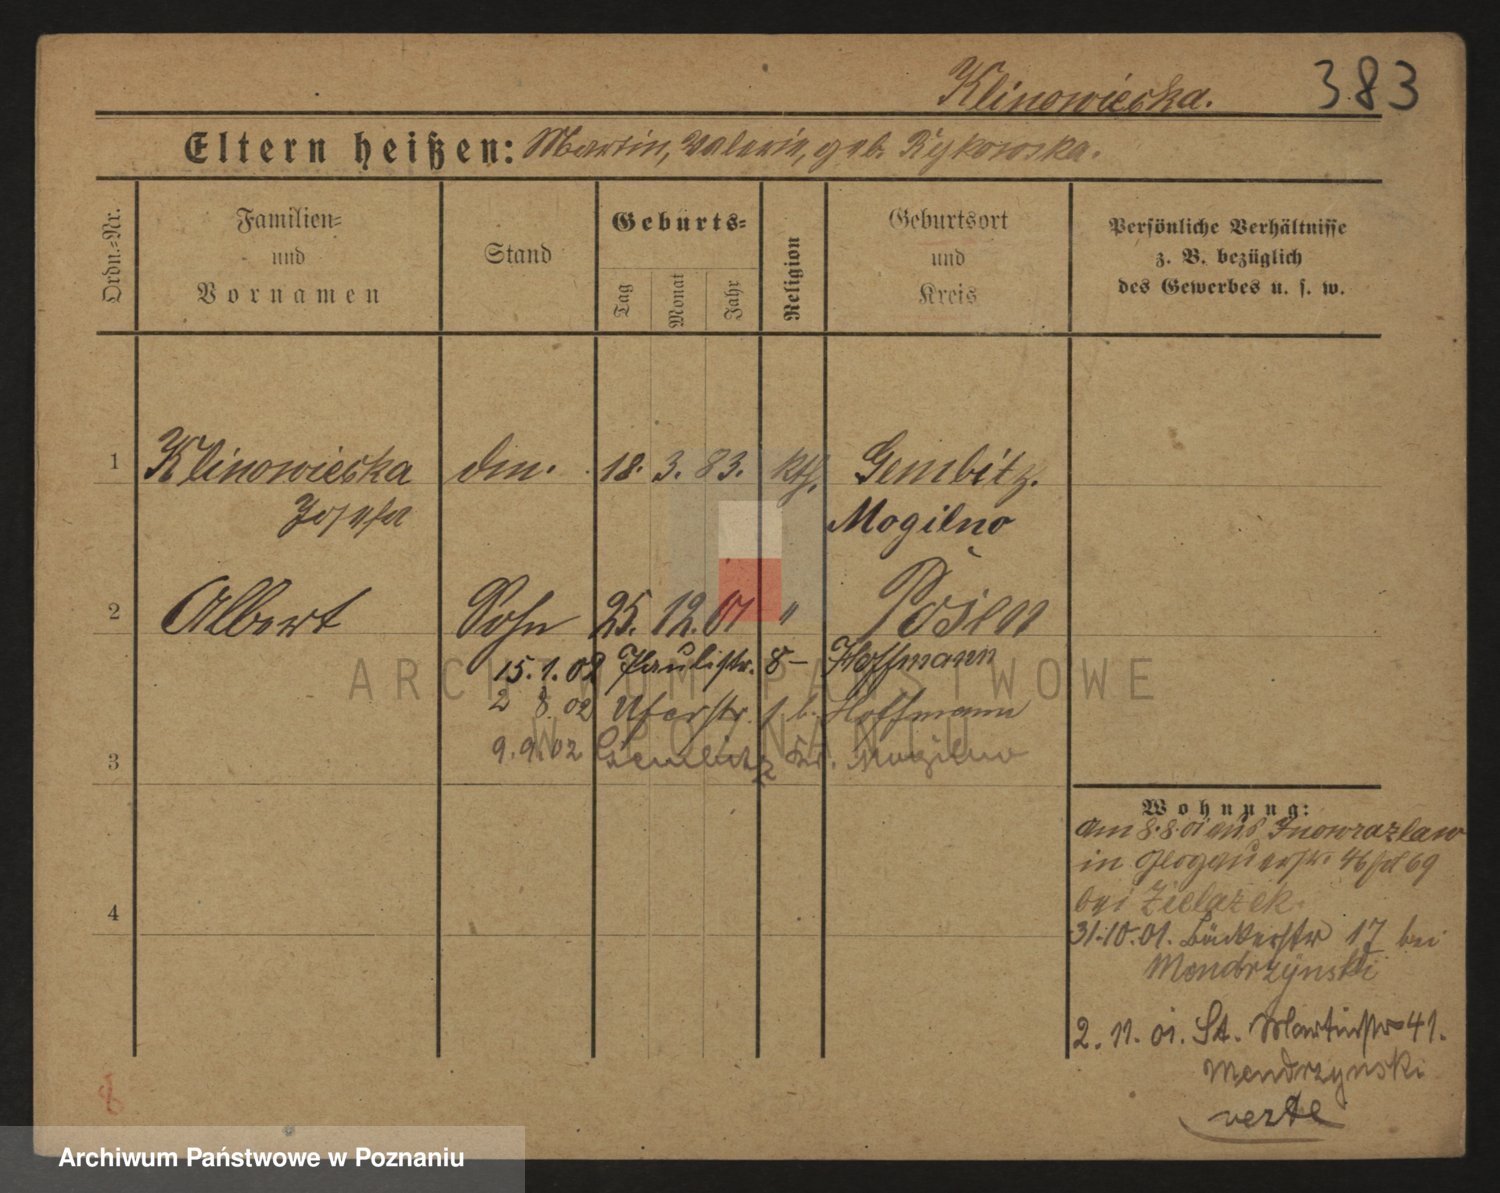 Klinowiecka.
383
Eltern heißen: Martin, Valerie, geb. Rykowska.
Ordn.=Nr.
Familien=
und
Vornamen
Stand
Geburts=
Tag
Monat
Jahr
Religion
Geburtsort
und
Kreis
Persönliche Verhältnisse
z. B. bezüglich
des Gewerbes u. s. w.
1 Klinowiecka dm. 18. 3. 83. kth. Gembitz.
Josefa Mogilno
2 Albert Sohn 25. 12. 01 " Posen
15. 1. 02 Paulistr. 8 – Hoffmann
2 8. 02 Uferstr. 1 b. Hoffmann
3 9. 9. 02 Gembitz Kr. Mogilno
4
Wohnung:
am 8.8.01 aus Inowrazlaw
in Glogauerstr. 46
bei Zielazek.
31.10.01. Bäckerstr 17 bei
Mendrzynski
2. 11. 01. St. Martinstr 41.
Mendrzynski
verte
8
ARCHIWUM PAŃSTWOWE
W POZNANIU
Archiwum Państwowe w Poznaniu